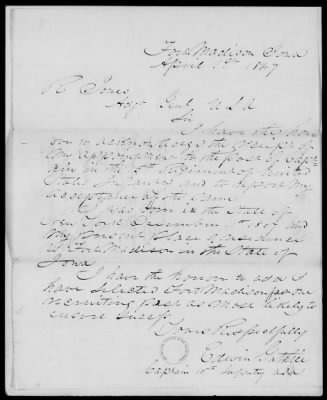 Fort Madison Iowa
April 1st 1847
R Jones
Adjt Genl U S A
Sir
I have the hon
or to acknowledge the receipt of
my appointment to the post of Capt
ain in the 15th Regiment of United
States Infantry and to report my
acceptance of the same
I was born in the State of
New York December 11th
and
my present place of residence
is Fort Madison in the State of
Iowa
I have the honor to add I
have selected Fort Madison for the
recruiting post as most likely to
ensure success
Yours Respectfully
Edwin Guthrie
Captain 15th Infantry USA